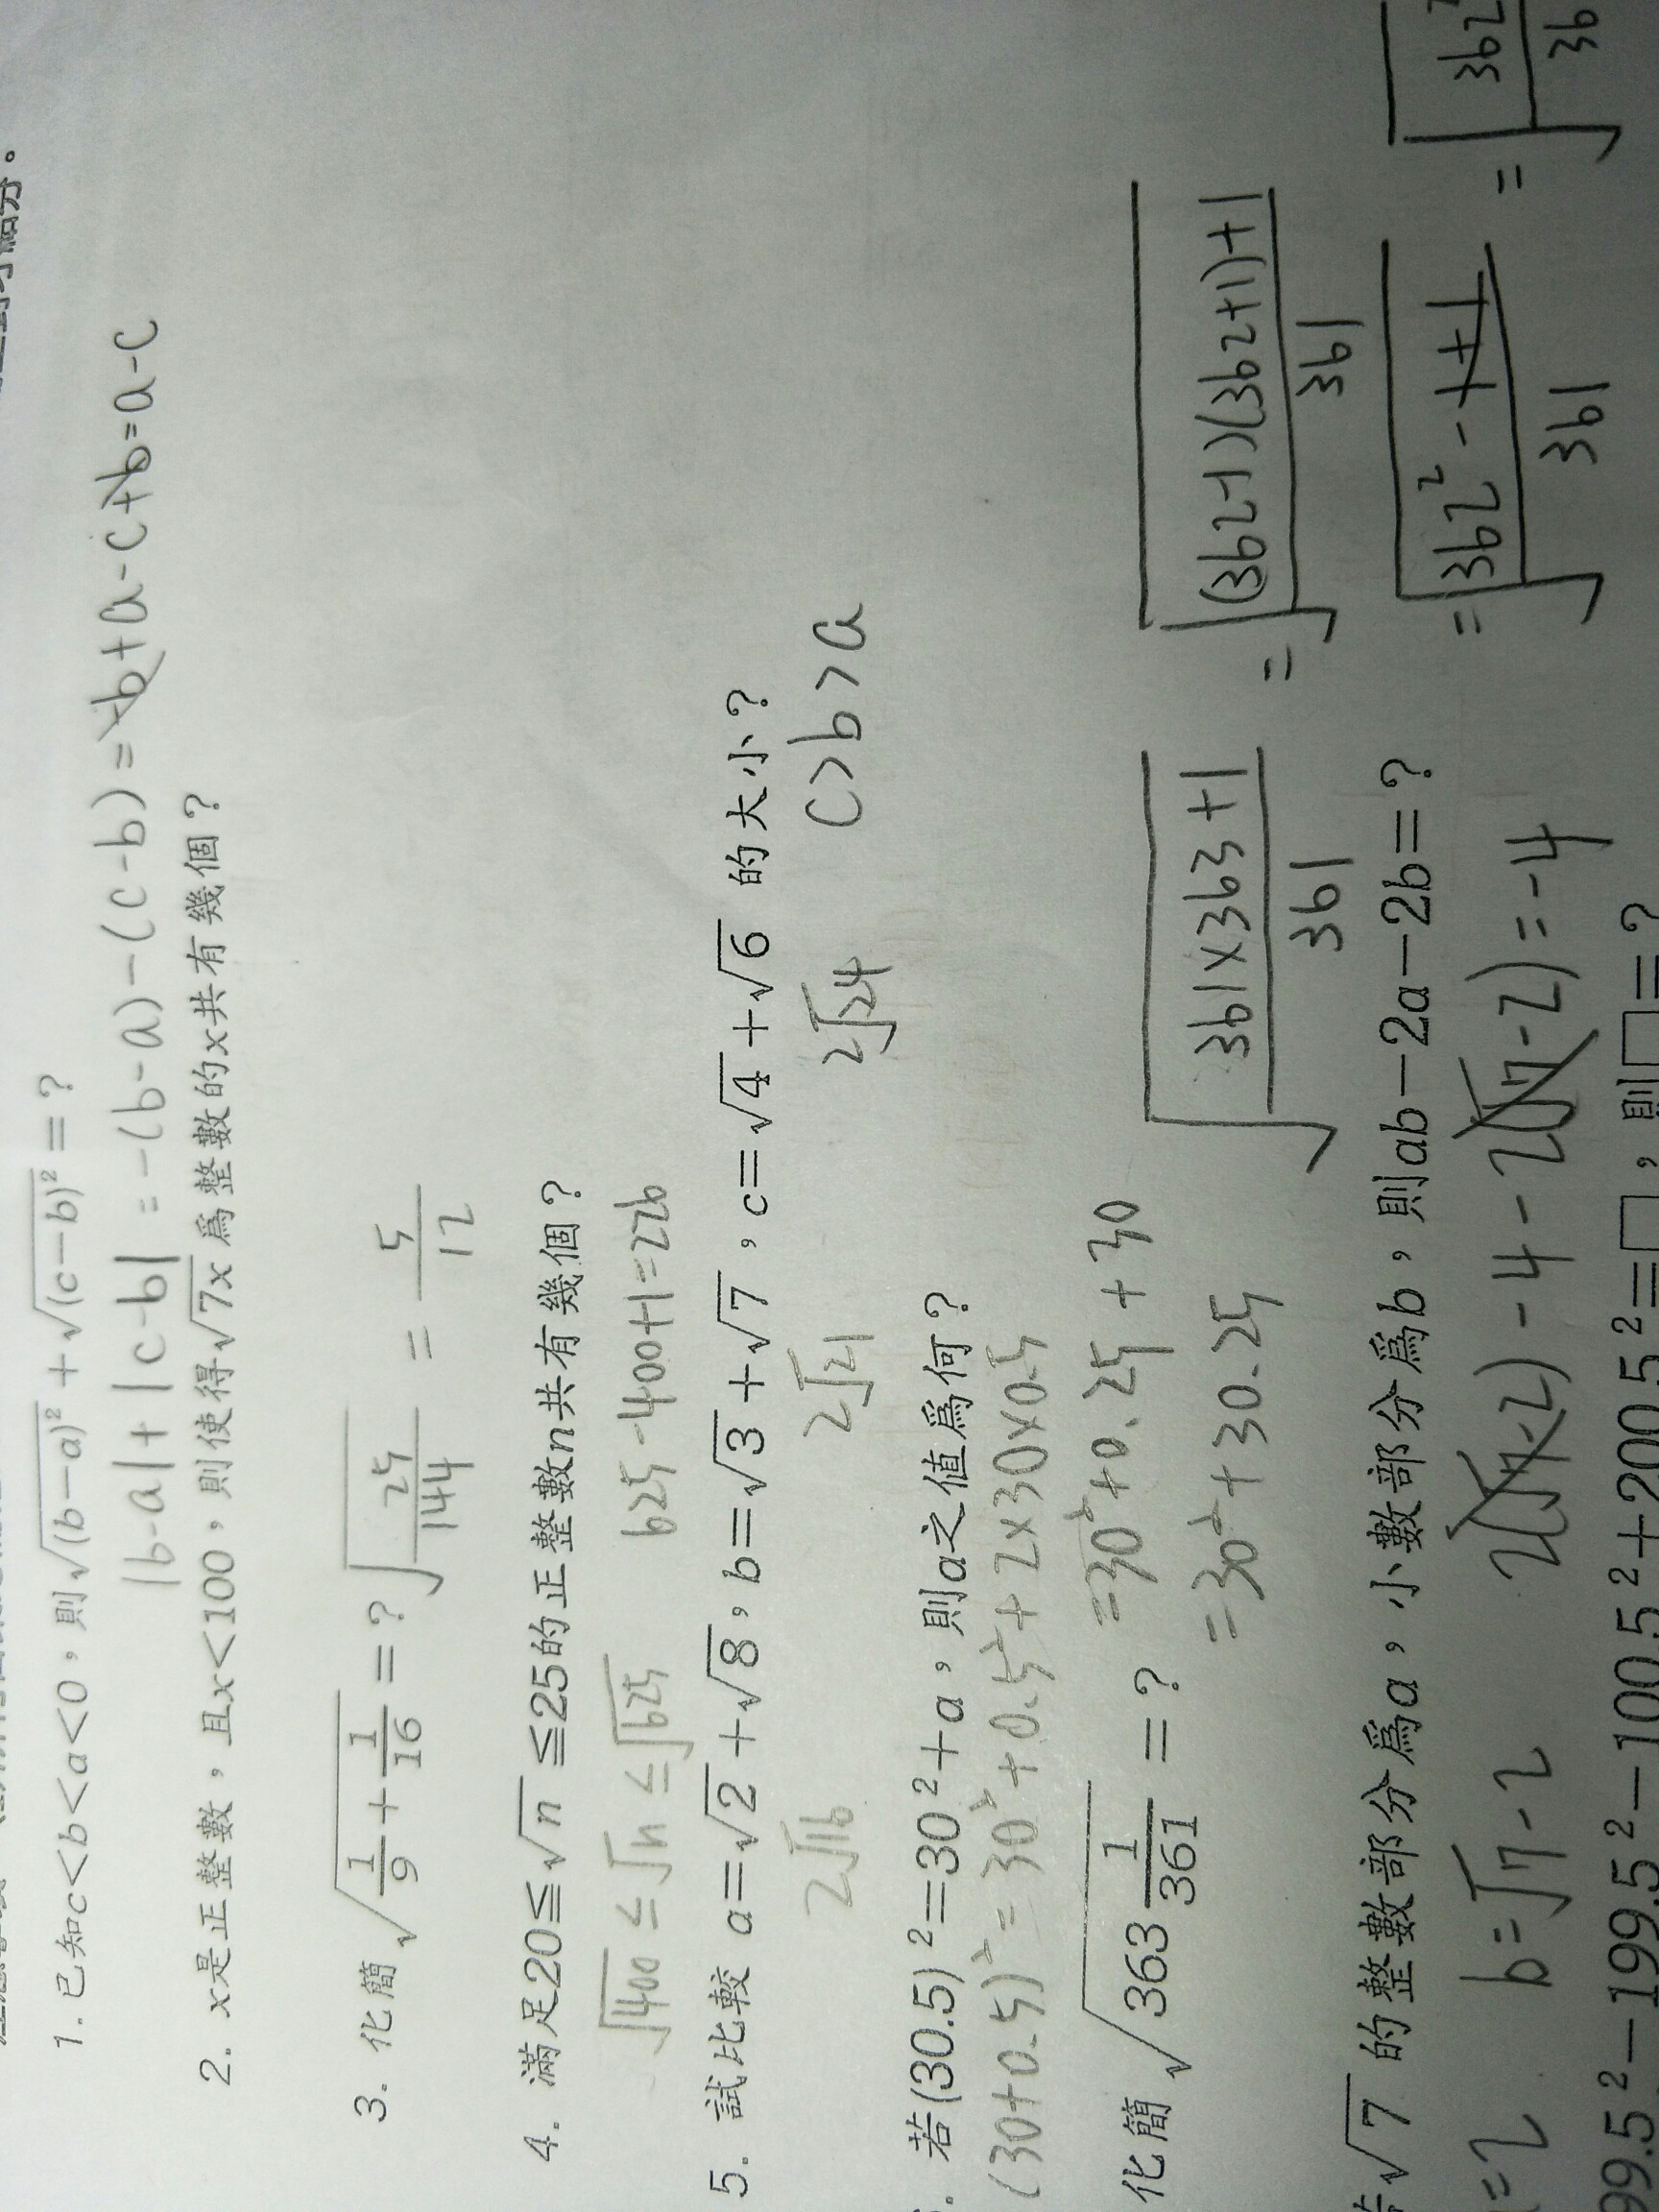 1. 已知c<b<a<0，則√(b−a)² + √(c−b)² = ?
|b-a| + |c-b| = -(b-a)-(c-b) = -b+a-c+b=a-c
2. x是正整數，且x<100，則使得√7x 為整數的x共有幾個？
3. 化簡 √(1/9 + 1/16) = ? √(25/144) = 5/12
4. 滿足20≦√n ≦25的正整數n共有幾個？
√400 ≤ √n ≤ √625 625-400+1=226
5. 試比較 a=√2+√8，b=√3+√7，c=√4+√6 的大小？
2√16 2√21 2√24 c>b>a
若(30.5)²=30²+a，則a之值爲何？
(30+0.5)²=30²+0.5²+2×30×0.5
=30²+0.25+30
=30²+30.25
化簡 √(363 1/361) = ?
√((361×363+1)/361) = √(((362-1)(362+1)+1)/361)
= √((362²-1+1)/361) = √(362
√7 的整數部分爲a，小數部分爲b，則ab−2a−2b=?
=2 b=√7-2 2(√7-2)-4-2(√7-2)=-4
99.5²−199.5²−100.5²+200.5²=□，則□=?